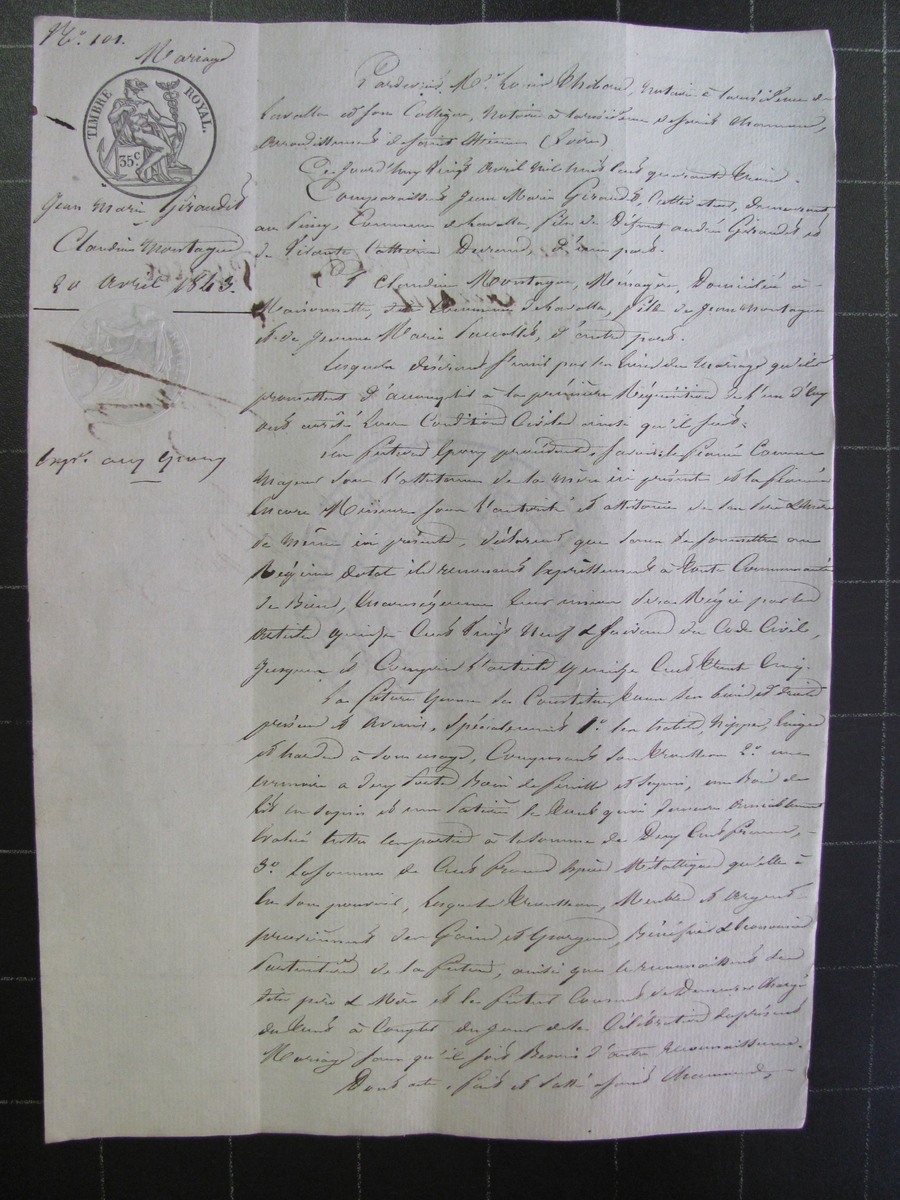 N.° 101.
Mariage
TIMBRE ROYAL.
35c
Jean Marie Giraudet
Claudine Montagne
20 Avril 1843.
Exp.on aux Epoux
Pardevant M.e Louis Thibaud, Notaire à la résidence de
Lavalla et son Collègue, Notaire à la résidence de Saint Chamond,
Arrondissement de Saint Etienne (Loire)
Ce Jourd'huy Vingt Avril Mil huit Cent quarante trois.
Comparaissent Jean Marie Giraudet, Cultivateur, demeurant
au Pinay, Commune de Lavalla, fils de Défunt André Giraudet et
de Vivante Catherine Durand, D'une part.
Et Claudine Montagne, Ménagère, Domiciliée à
Maisonnette, dite Commune de Lavalla, fille de Jean Montagne
et de Jeanne Marie, D'autre part.
Lesquels désirant s'unir par les liens du Mariage qu'ils
promettent d'accomplir à la première Réquisition de l'un d'eux
ont arrêté leurs Conditions Civiles ainsi qu'il suit.
Les futurs Epoux procédant, savoir le premier Comme
Majeur sous l'assistance de sa mère ici présente et la future
Encore Mineure sous l'autorité et assistance de ses père & mère
de même ici présents, déclarent que sans se soumettre au
Régime dotal ils renoncent Expressément à toute Communauté
de Biens, En conséquence leur union sera Régie par les
articles quinze Cent Vingt Neuf & suivant du Code Civil,
Jusques et Compris l'article quinze Cent trente Cinq.
La future Epouse se Constitue tous ses biens et droits
présens & Avenir, spécialement 1.° ses habits, Nippes, Linges
et hardes à son usage, Composant son trousseau 2.° une
armoire à deux portes Bois de et sapin, un Bois de
lit en sapin et sa le tout quoi demeure amiablement
évalué entre les parties à la somme de Deux Cents francs,
3.° La somme de Cent francs Espèces Métalliques qu'elle a
En son pouvoir, Lesquels trousseau, Meubles & argent
proviennent des Gains et Epargnes, Bénéfices & Economies
particulières de la future, ainsi que le reconnaissent ses
dits père & Mère et le futur Consent de Demeurer Chargé
du tout à Compter du jour de la Célébration du présent
Mariage sans qu'il soit Besoin d'autre reconnaissance.
Dont acte, fait et passé à Saint Chamond,